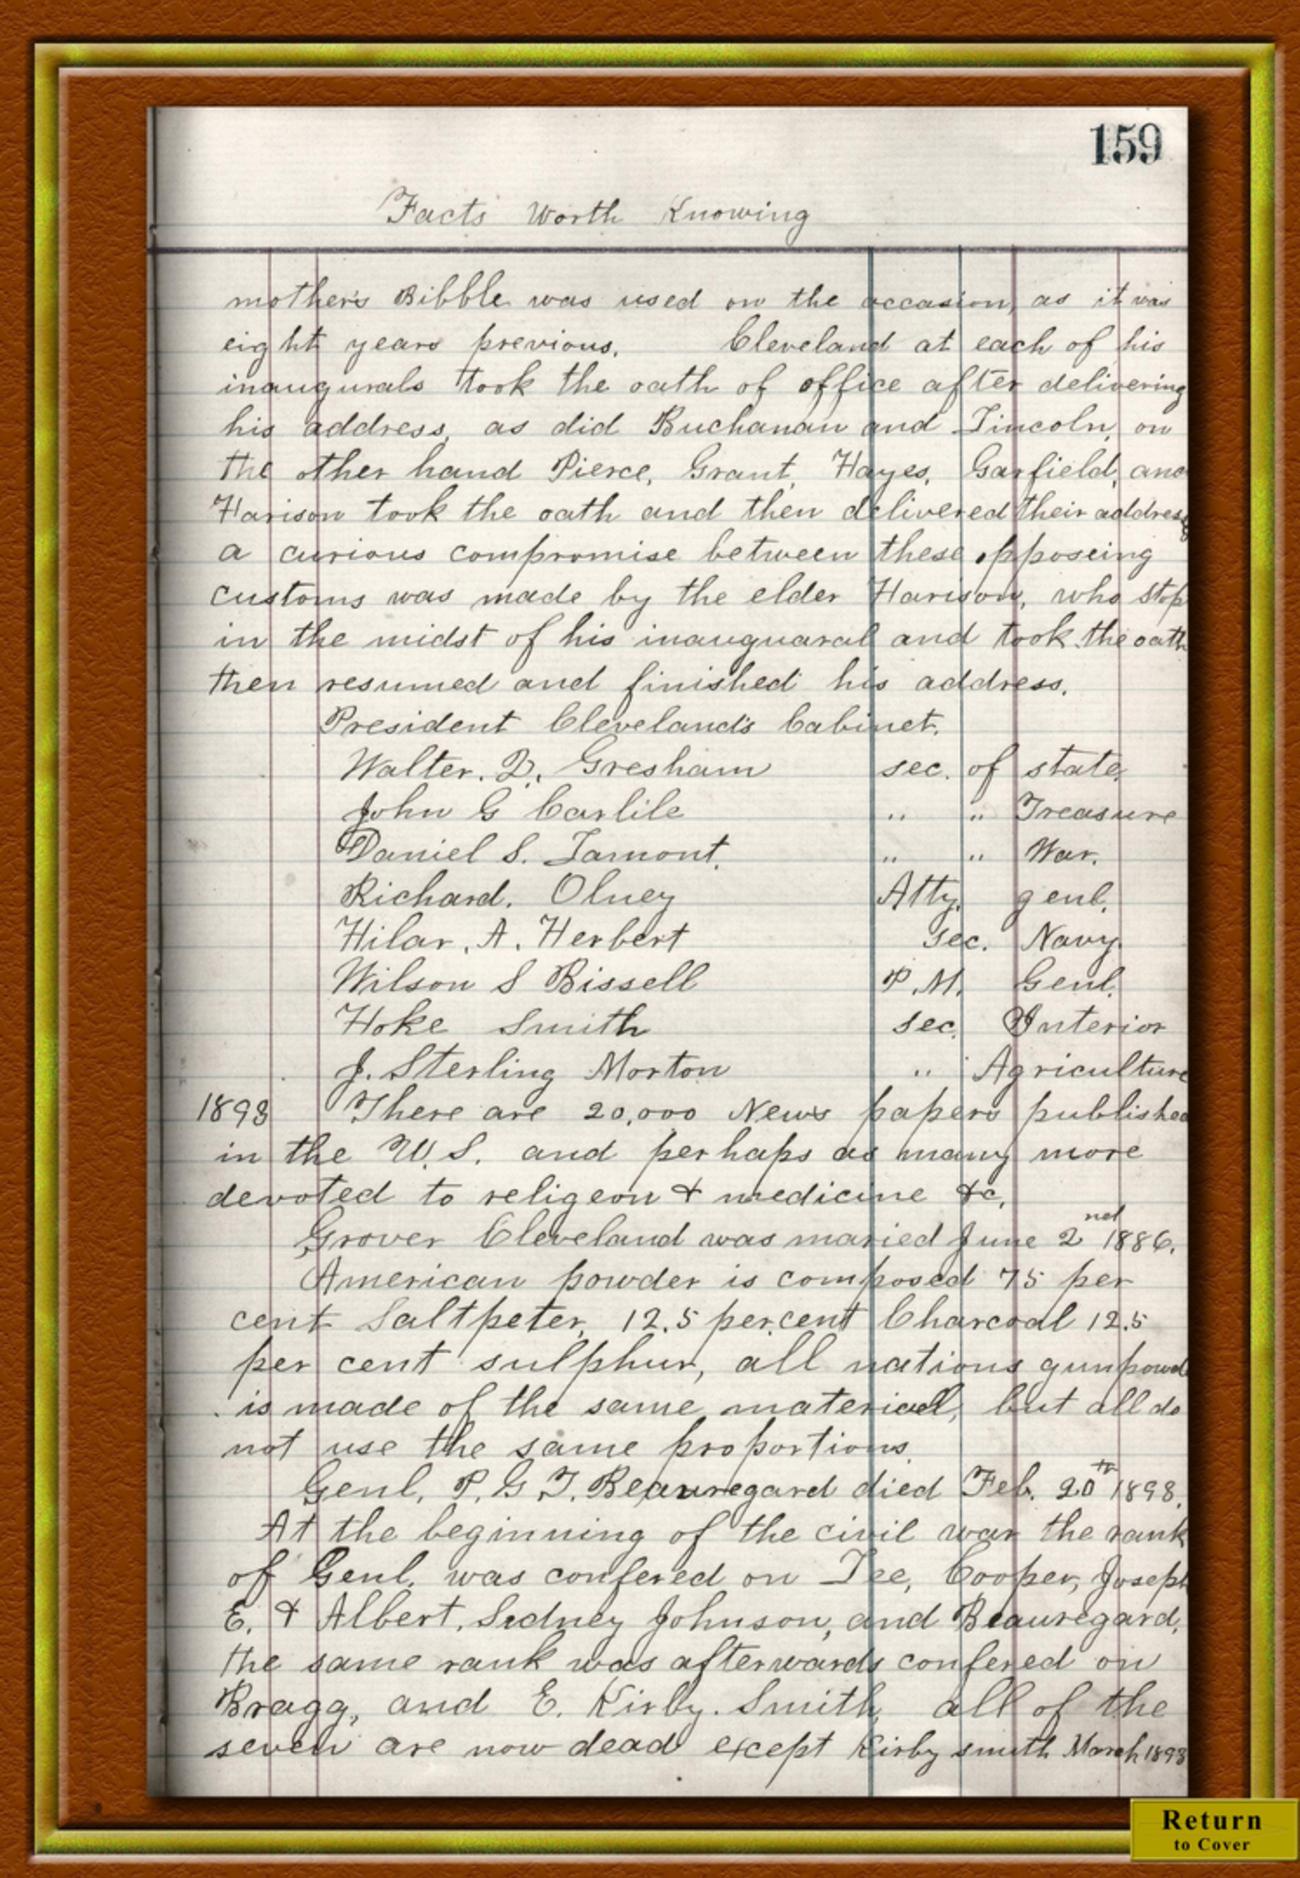 159
Facts Worth Knowing
mother's Bibble was used on the occasion, as it was
eight years previous. Cleveland at each of his
inaugurals took the oath of office after delivering
his address, as did Buchanan and Lincoln, on
the other hand Pierce, Grant, Hayes, Garfield, and
Harison took the oath and then delivered their address
a curious compromise between these opposeing
customs was made by the elder Harison, who stop
in the midst of his inauguaral and took the oath
then resumed and finished his address.
President Cleveland's Cabinet.
Walter. Q. Gresham sec. of state.
John G Carlile " " Treasure
Daniel S. Lamont. " " War.
Richard. Olney Atty. genl.
Hilar. A. Herbert sec. Navy.
Wilson S Bissell P. M. Genl.
Hoke Smith sec. Interior
J. Sterling Morton " Agriculture
1893 There are 20,000 News papers published
in the U.S. and perhaps as many more
devoted to religeon & medicine &c,
Grover Cleveland was maried June 2nd 1886.
American powder is composed 75 per
cent Saltpeter, 12.5 per cent Charcoal 12.5
per cent sulphur, all nations gunpowd
is made of the same material, but all do
not use the same proportions.
Genl. P. G. T. Beauregard died Feb. 20th 1893.
At the beginning of the civil war the rank
of Genl. was confered on Lee, Cooper, Joseph
E. & Albert. Sidney Johnson, and Beauregard,
the same rank was afterwards confered on
Bragg, and E. Kirby. Smith, all of the
seven are now dead except Kirby smith March 1893
Return
to Cover